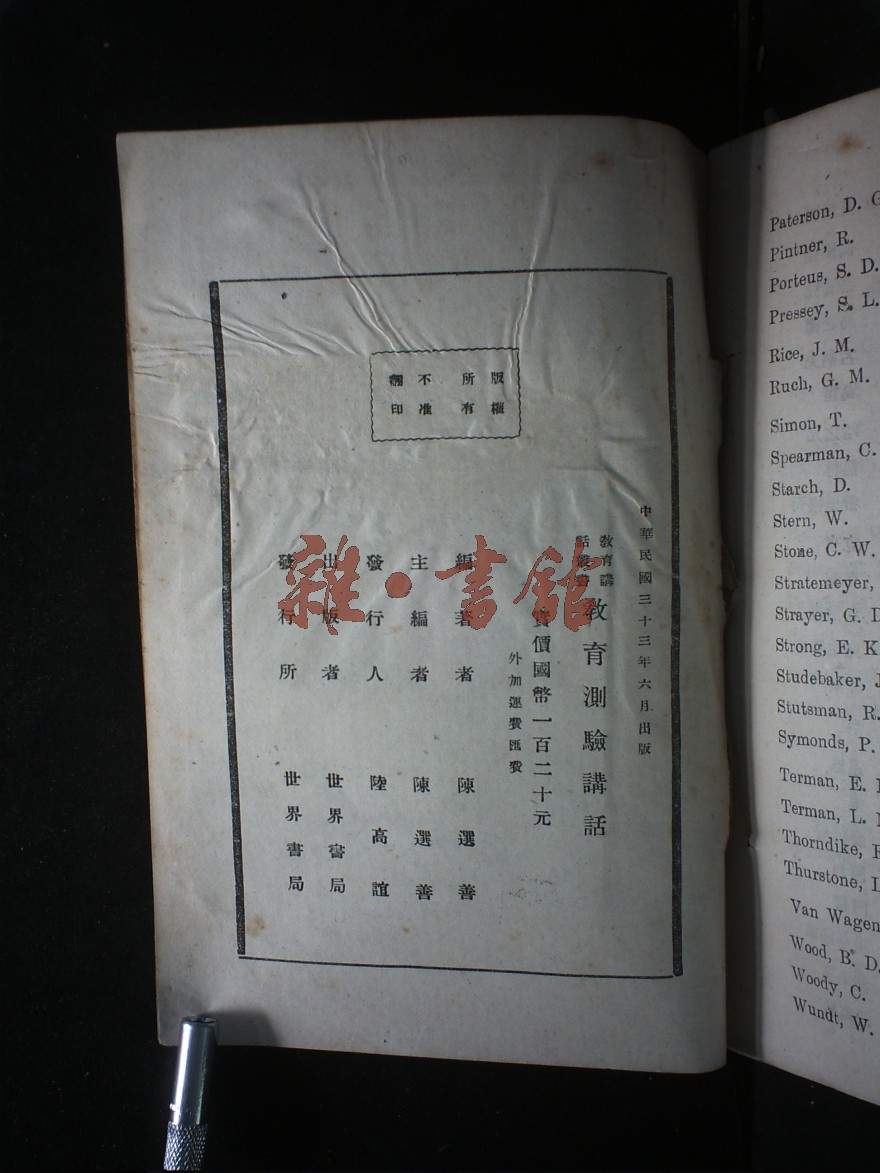 版權
所有
不准
翻印
中華民國三十三年六月出版
教育講
話叢書
教育測驗講話
實價國幣一百二十元
外加運費匯費
編著者 陳選善
主編者 陳選善
發行人 陸高誼
出版者 世界書局
發行所 世界書局
雜·書館
Paterson, D. G
Pintner, R.
Porteus, S. D.
Pressey, S. L.
Rice, J. M.
Ruch, G. M.
Simon, T.
Spearman, C.
Starch, D.
Stern, W.
Stone, C. W.
Stratemeyer,
Strayer, G. D
Strong, E. K
Studebaker, J
Stutsman, R.
Symonds, P.
Terman, E.
Terman, L.
Thorndike, E
Thurstone, L
Van Wagen
Wood, B. D.
Woody, C.
Wundt, W.